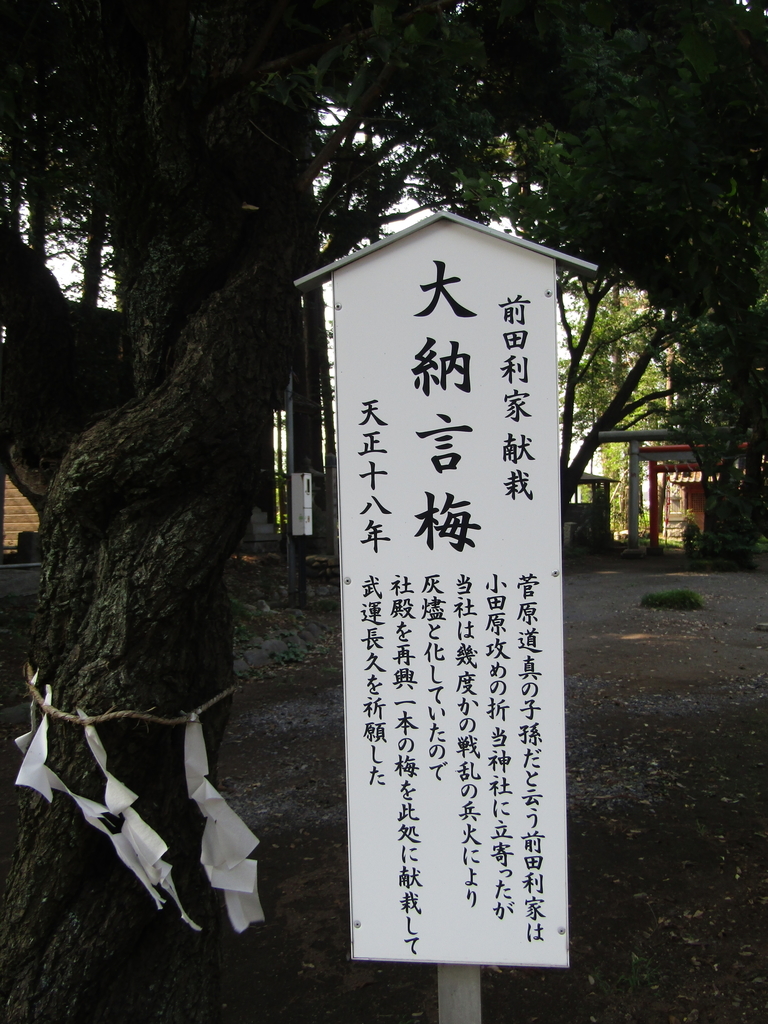 前田利家 献栽
大納言梅
天正十八年
菅原道真の子孫だと云う前田利家は
小田原攻めの折 当神社に立寄ったが
当社は幾度かの戦乱の兵火により
灰燼と化していたので
社殿を再興 一本の梅を此処に献栽して
武運長久を祈願した